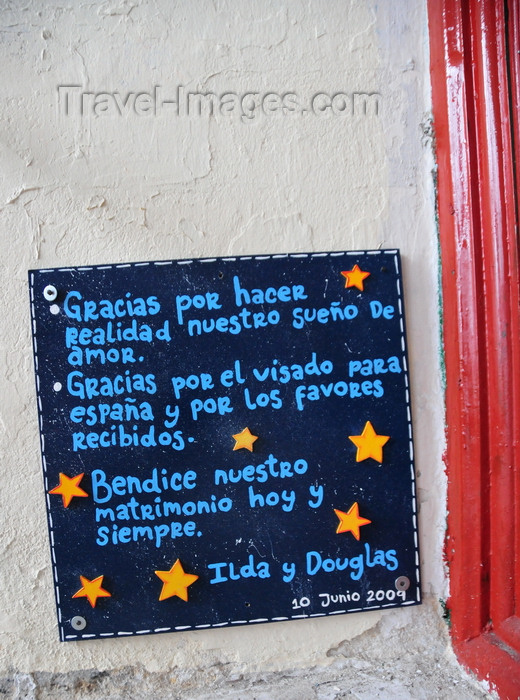 Travel-Images.com
Gracias por hacer
realidad nuestro sueño de
amor.
Gracias por el visado para
españa y por los favores
recibidos.
Bendice nuestro
matrimonio hoy y
siempre.
Ilda y Douglas
10 Junio 2009